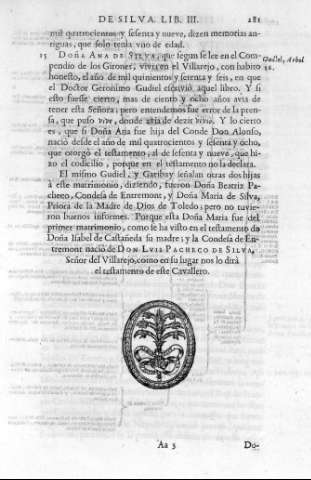 DE SILVA. LIB. III. 281
mil quatrocientos y sesenta y nueve, dizen memorias an-
tiguas, que solo tenia vno de edad.
15 DOÑA ANA DE SILVA, que segun se lee en el Com-
pendio de los Girones, vivia en el Villarejo, con habito
honesto, el año de mil quinientos y setenta y seis, en que
el Doctor Geronimo Gudiel escrivió aquel libro. Y si
esto fuesse cierto, mas de ciento y ocho años avia de
tener esta Señora; pero entendemos fue error de la pren-
sa, que puso vive, donde avia de dezir vivio. Y lo cierto
es, que si Doña Ana fue hija del Conde Don Alonso,
nació desde el año de mil quatrocientos y sesenta y ocho,
que otorgó el testamento, al de sesenta y nueve, que hi-
zo el codicilio, porque en el testamento no la declara.
Gudiel, Arbol
32.
El mismo Gudiel, y Garibay señalan otras dos hijas
à este matrimonio, diziendo, fueron Doña Beatriz Pa-
checo, Condesa de Entremont, y Doña Maria de Silva,
Priora de la Madre de Dios de Toledo; pero no tuvie-
ron buenos informes. Porque esta Doña Maria fue del
primer matrimonio, como se ha visto en el testamento de
Doña Isabel de Castañeda su madre; y la Condesa de En-
tremont nació de DON LVIS PACHECO DE SILVA,
Señor del Villarejo, como en su lugar nos lo dirà
el testamento de este Cavallero.
Aa 3 Do-